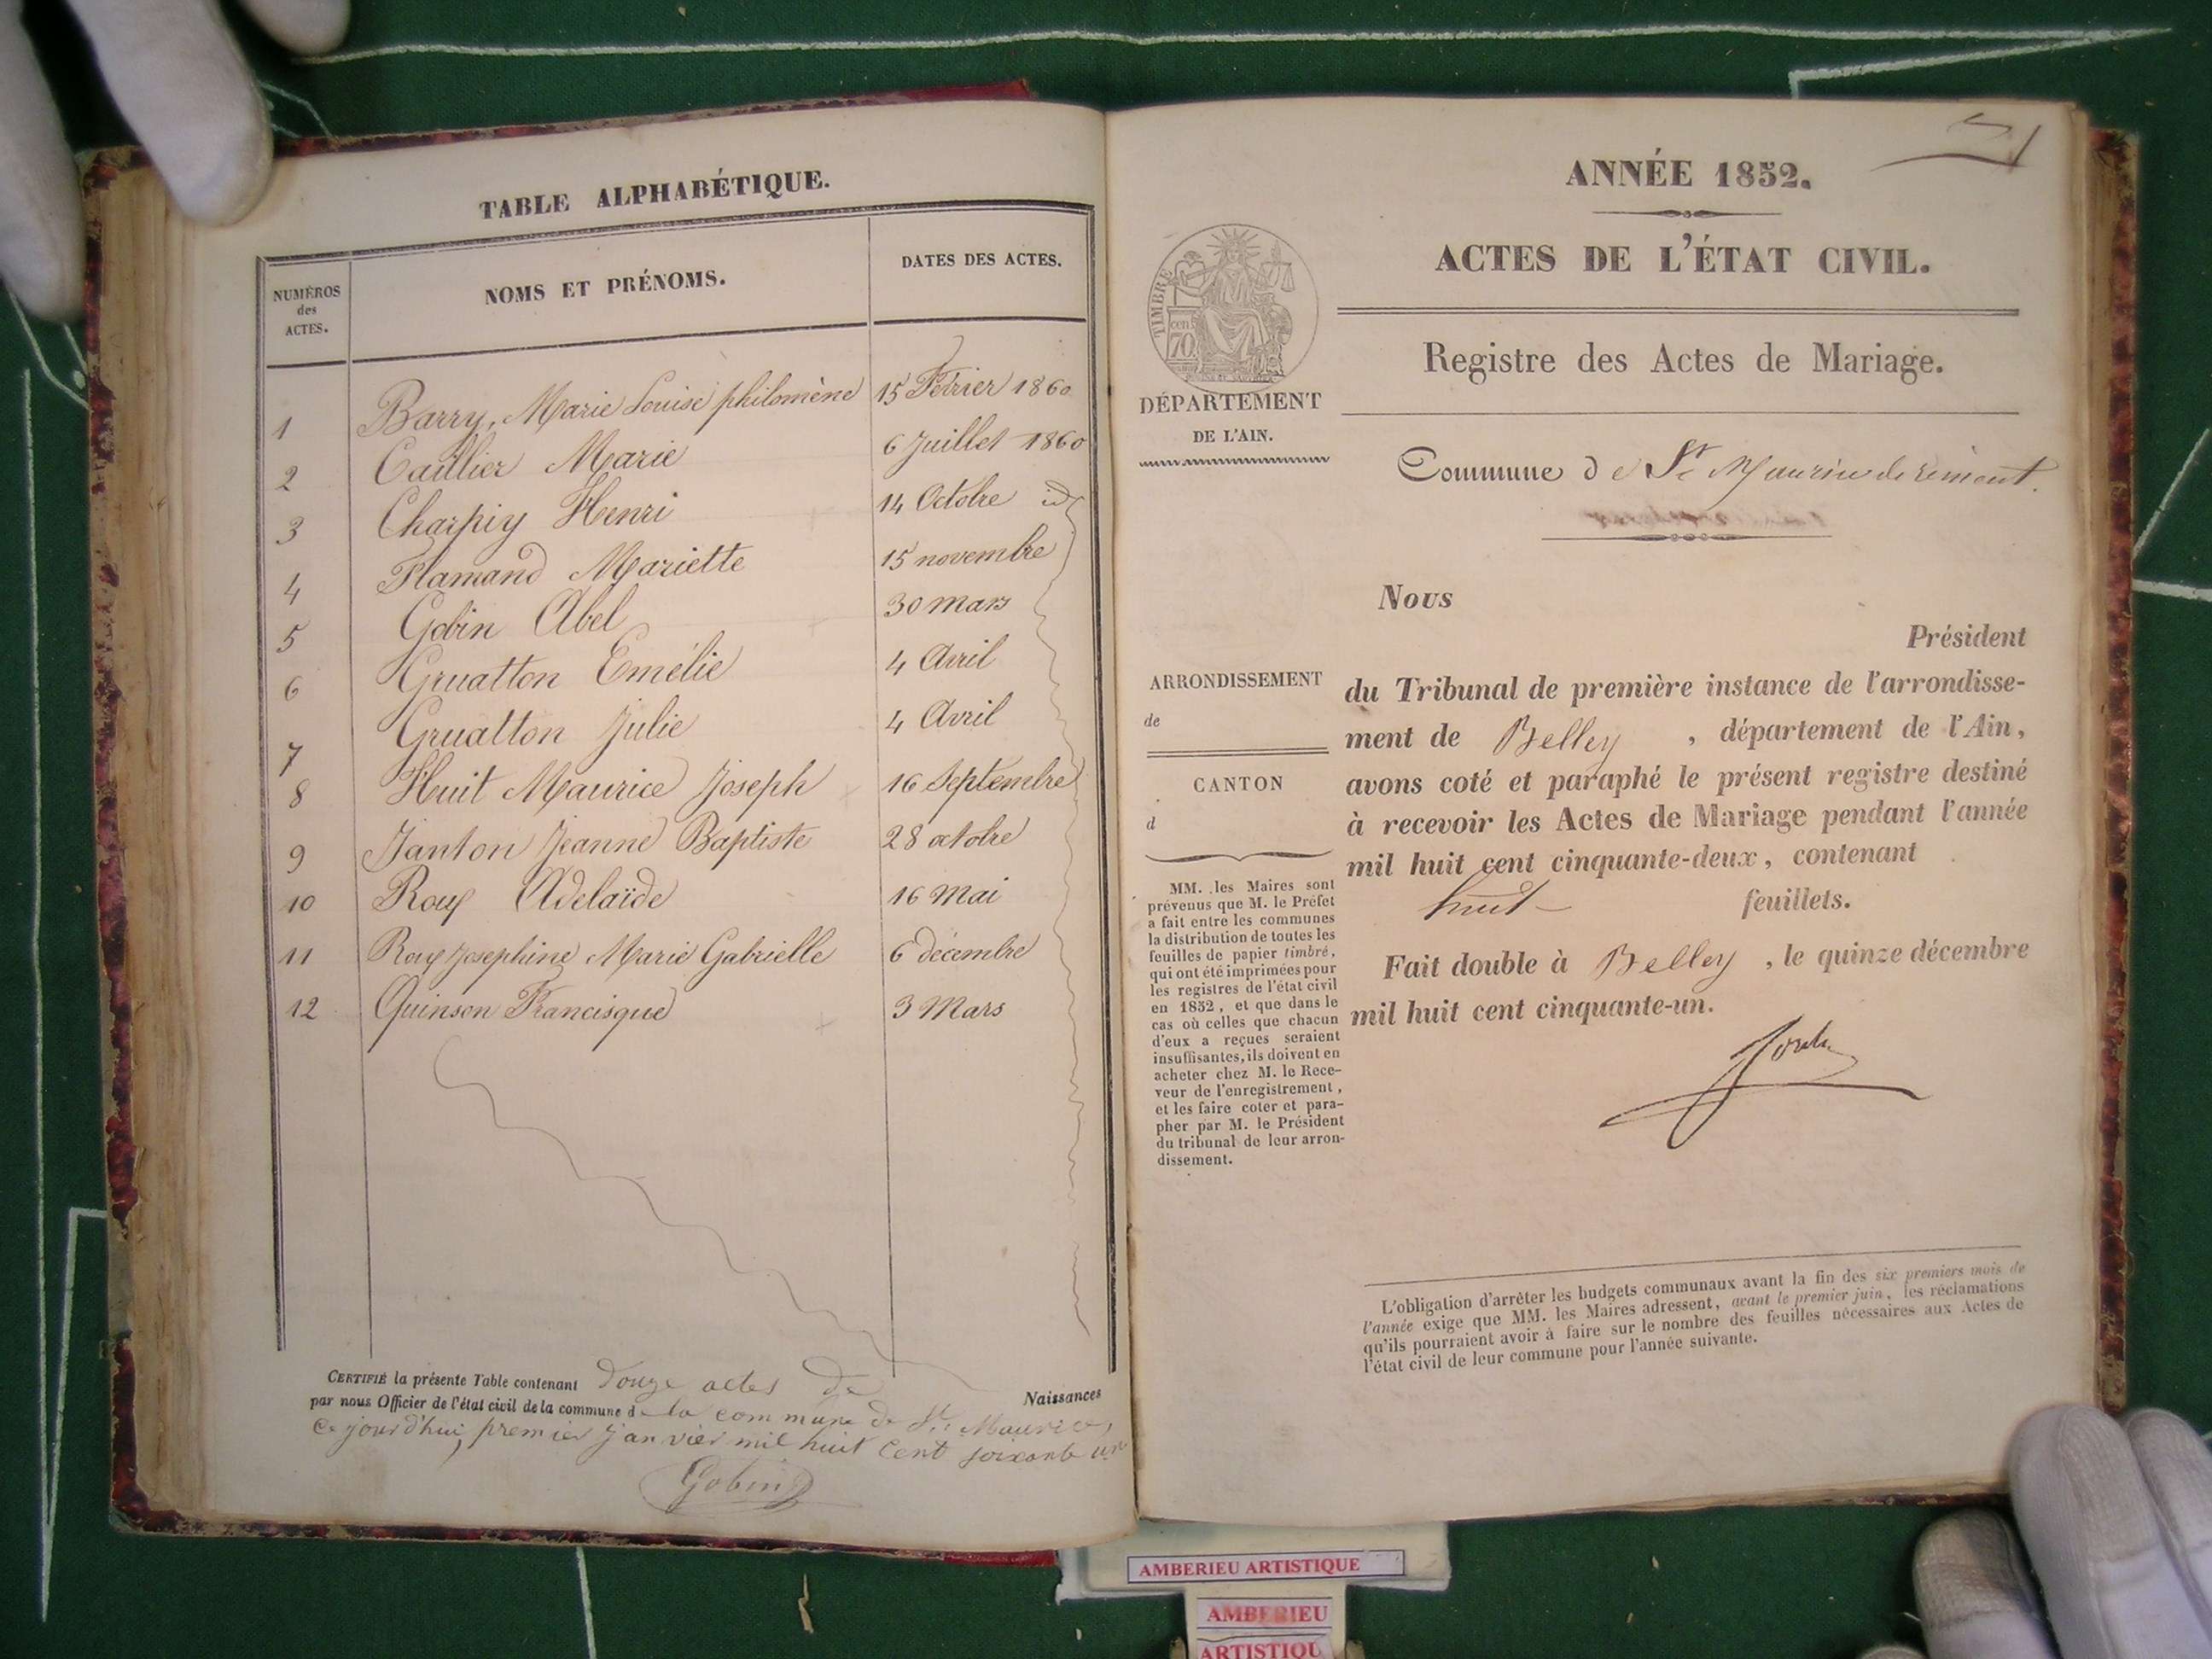 TABLE ALPHABÉTIQUE.
NUMÉROS
des
ACTES.
NOMS ET PRÉNOMS.
DATES DES ACTES.
1 Barry, Marie Louise philomène 15 Fevrier 1860
2 Caillier Marie 6 Juillet 1860
3 Charpiy Henri 14 Octobre id
4 Flamand Mariette 15 novembre
5 Gobin Abel 30 mars
6 Gruatton Emélie 4 Avril
7 Gruatton Julie 4 Avril
8 Huit Maurice Joseph 16 Septembre
9 Janton Jeanne Baptiste 28 octobre
10 Roux Adelaïde 16 Mai
11 Roux Josephine Marie Gabrielle 6 décembre
12 Quinson Francisque 3 Mars
CERTIFIÉ la présente Table contenant douze actes de Naissances
par nous Officier de l'état civil de la commune de la commune de St. Maurice,
Ce jourd'hui premier janvier mil huit cent soixante un
Gobin
ANNÉE 1852.
ACTES DE L'ÉTAT CIVIL.
Registre des Actes de Mariage.
TIMBRE
70 cen.
DÉPARTEMENT
DE L'AIN.
Commune de St Maurice de rémont.
Nous
Président
du Tribunal de première instance de l'arrondisse-
ment de Belley, département de l'Ain,
avons coté et paraphé le présent registre destiné
à recevoir les Actes de Mariage pendant l'année
mil huit cent cinquante-deux, contenant
huit feuillets.
Fait double à Belley, le quinze décembre
mil huit cent cinquante-un.
ARRONDISSEMENT
de
CANTON
d
MM. les Maires sont
prévenus que M. le Préfet
a fait entre les communes
la distribution de toutes les
feuilles de papier timbré,
qui ont été imprimées pour
les registres de l'état civil
en 1852, et que dans le
cas où celles que chacun
d'eux a reçues seraient
insuffisantes, ils doivent en
acheter chez M. le Rece-
veur de l'enregistrement,
et les faire coter et para-
pher par M. le Président
du tribunal de leur arron-
dissement.
L'obligation d'arrêter les budgets communaux avant la fin des six premiers mois de
l'année exige que MM. les Maires adressent, avant le premier juin, les réclamations
qu'ils pourraient avoir à faire sur le nombre des feuilles nécessaires aux Actes de
l'état civil de leur commune pour l'année suivante.
AMBERIEU ARTISTIQUE
AMBERIEU
ARTISTIQU